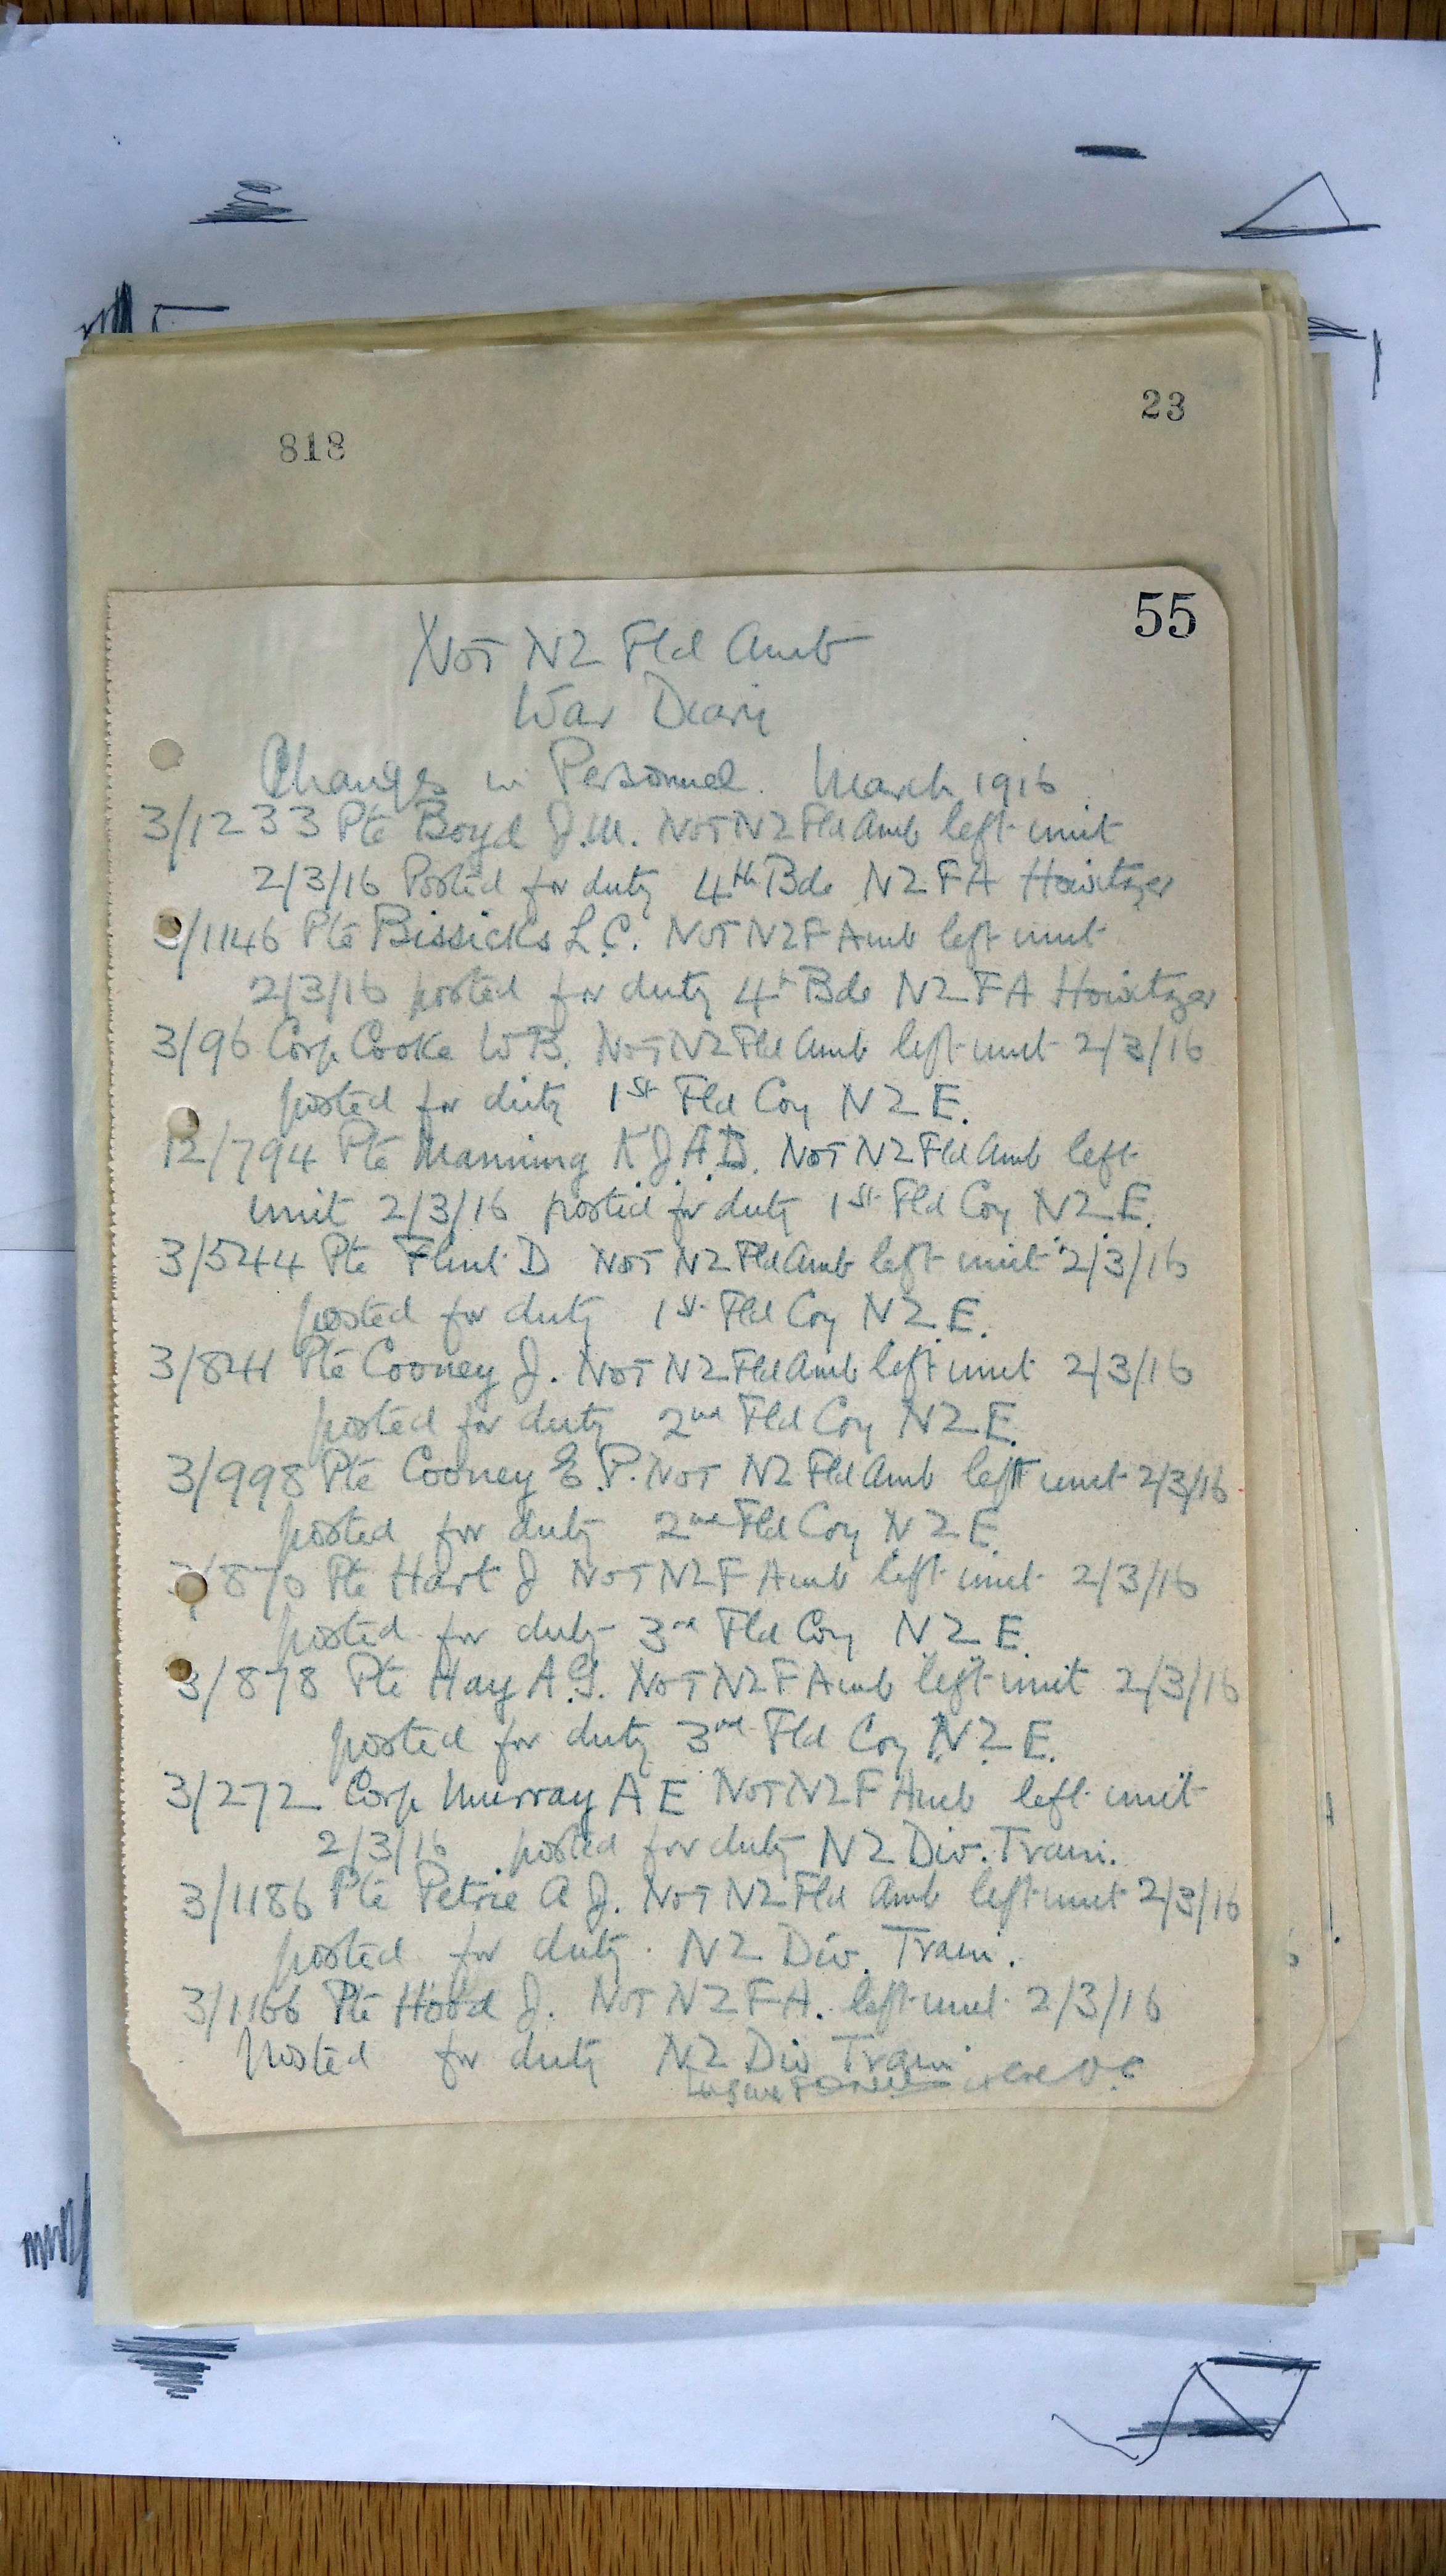 23
818
55
Not NZ Fld Amb
War Diary
Changes in Personnel. March 1916
3/1233 Pte Boyd J.M. Not NZ Fld Amb left unit
2/3/16 Posted for duty 4th Bde NZFA Howitzer
3/1146 Pte Bissicks L.C. Not NZF Amb left unit
2/3/16 posted for duty 4th Bde NZFA Howitzer
3/96 Corp Cooke W B. Not NZ Fld Amb left unit 2/3/16
posted for duty 1st Fld Coy NZ E.
12/794 Pte Manning K J.A.D. Not NZ Fld Amb left
unit 2/3/16 posted for duty 1st Fld Coy NZ E.
3/544 Pte Flint D Not NZ Fld Amb left unit 2/3/16
posted for duty 1st Fld Coy NZ.E.
3/841 Pte Cooney J. Not NZ Fld Amb left unit 2/3/16
posted for duty 2nd Fld Coy NZE.
3/998 Pte Cooney E.P. Not NZ Fld Amb left unit 2/3/16
posted for duty 2nd Fld Coy N.Z.E.
/870 Pte Hart J Not NZF Amb left unit 2/3/16
posted for duty 3rd Fld Coy NZ E
3/878 Pte Hay A.G. Not NZF Amb left unit 2/3/16
posted for duty 3rd Fld Coy N.Z.E.
3/272 Corp Murray A E Not NZF Amb left unit
2/3/16 posted for duty NZ Div. Train.
3/1186 Pte Petrie A J. Not NZ Fld Amb left unit 2/3/16
posted for duty. NZ Div. Train.
3/1166 Pte Hood J. Not NZFA. left unit 2/3/16
Posted for duty NZ Div Train